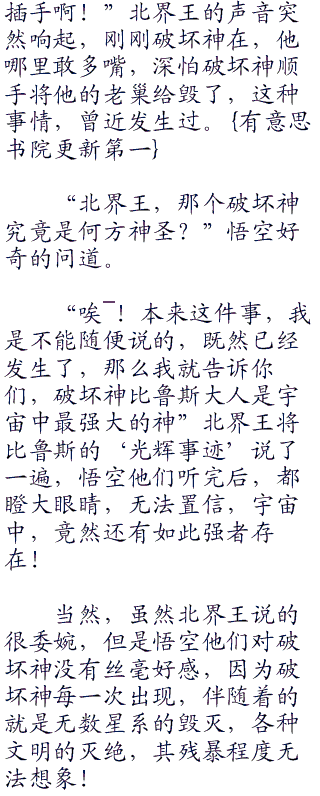 插手啊！”北界王的声音突
然响起，刚刚破坏神在，他
哪里敢多嘴，深怕破坏神顺
手将他的老巢给毁了，这种
事情，曾近发生过。{有意思
书院更新第一}
“北界王，那个破坏神
究竟是何方神圣？”悟空好
奇的问道。
“唉¯！本来这件事，我
是不能随便说的，既然已经
发生了，那么我就告诉你
们，破坏神比鲁斯大人是宇
宙中最强大的神”北界王将
比鲁斯的‘光辉事迹’说了
一遍，悟空他们听完后，都
瞪大眼睛，无法置信，宇宙
中，竟然还有如此强者存
在！
当然，虽然北界王说的
很委婉，但是悟空他们对破
坏神没有丝毫好感，因为破
坏神每一次出现，伴随着的
就是无数星系的毁灭，各种
文明的灭绝，其残暴程度无
法想象！